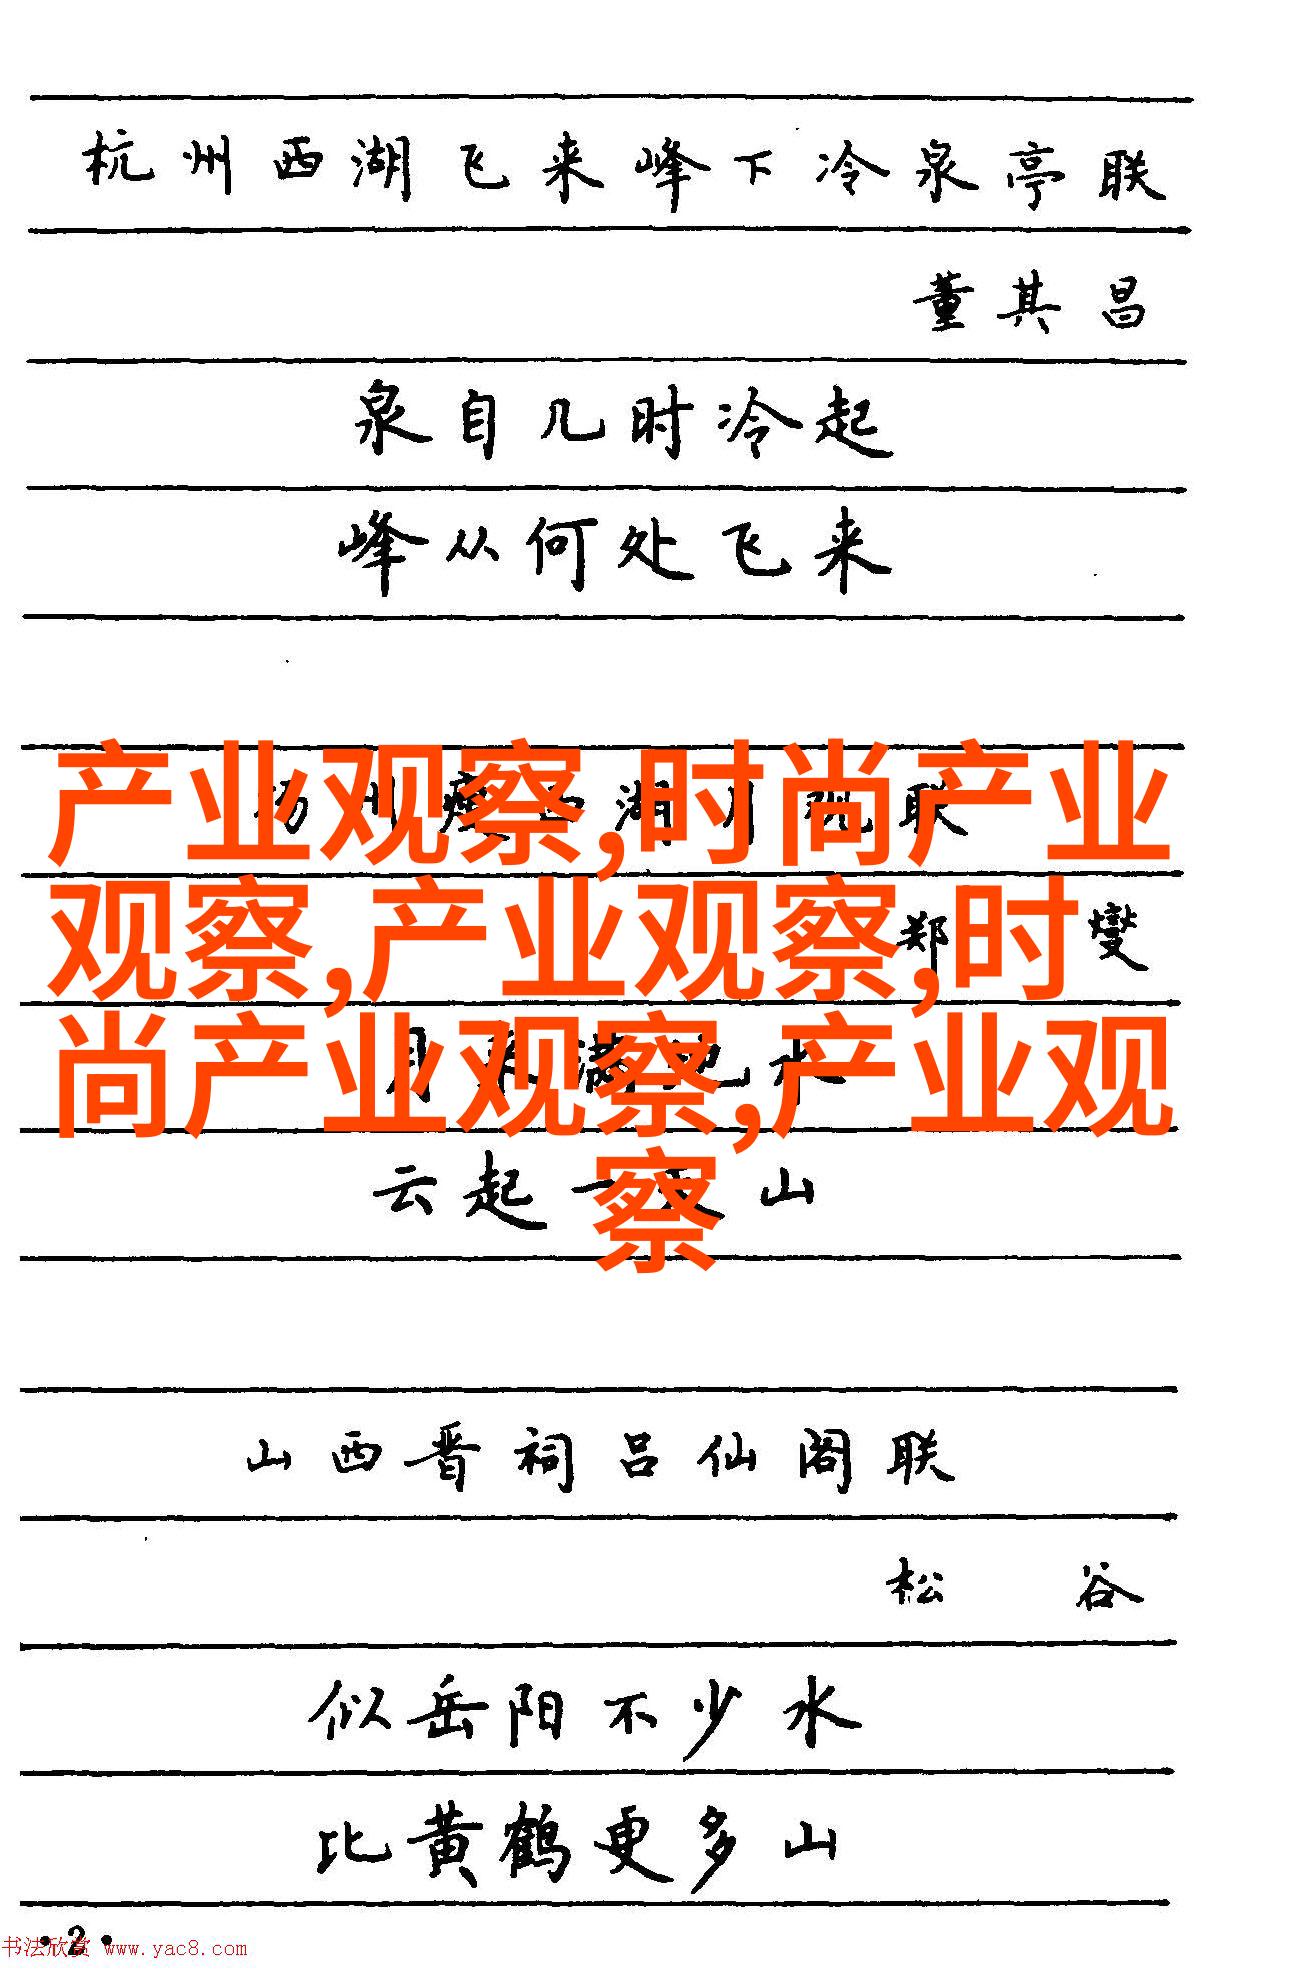 杭州西湖飞来峰下冷泉亭联
董其昌
泉自几时冷起
峰从何处飞来
产业观察,时尚产业
观察,产业观察,时
尚产业观察,产业观
察
扬州瘦西湖月观联
郑燮
月来满地水
云起一天山
山西晋祠吕仙阁联
松谷
似岳阳不少水
比黄鹤更多山
·2·
书法欣赏 www.yac8.com